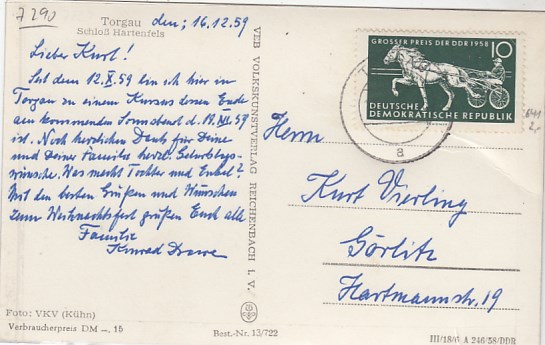 7290
Torgau den; 16.12.59
Schloß Hartenfels
Lieber Kurt!
Seit dem 12.X.59 bin ich hier in
Torgau zu einem Kursus dessen Ende
am kommenden Sonnabend d. 19.XII.59
ist. Noch herzlichen Dank für Deine
und Deine Familie herzl. Geburtstags-
wünsche. Was macht Tochter und Enkel?
Mit den besten Grüßen und Wünschen
zum Weihnachtsfest grüßen Euch alle
Familie
Konrad
Foto: VKV (Kühn)
Verbraucherpreis DM —,15
VEB VOLKSKUNSTVERLAG REICHENBACH I. V.
Best.-Nr. 13/722
GROSSER PREIS DER DDR 1958 10
DEUTSCHE
DEMOKRATISCHE REPUBLIK
a
Herrn
Kurt Vierling
Görlitz
Hartmannstr. 19
A 246/58/DDR